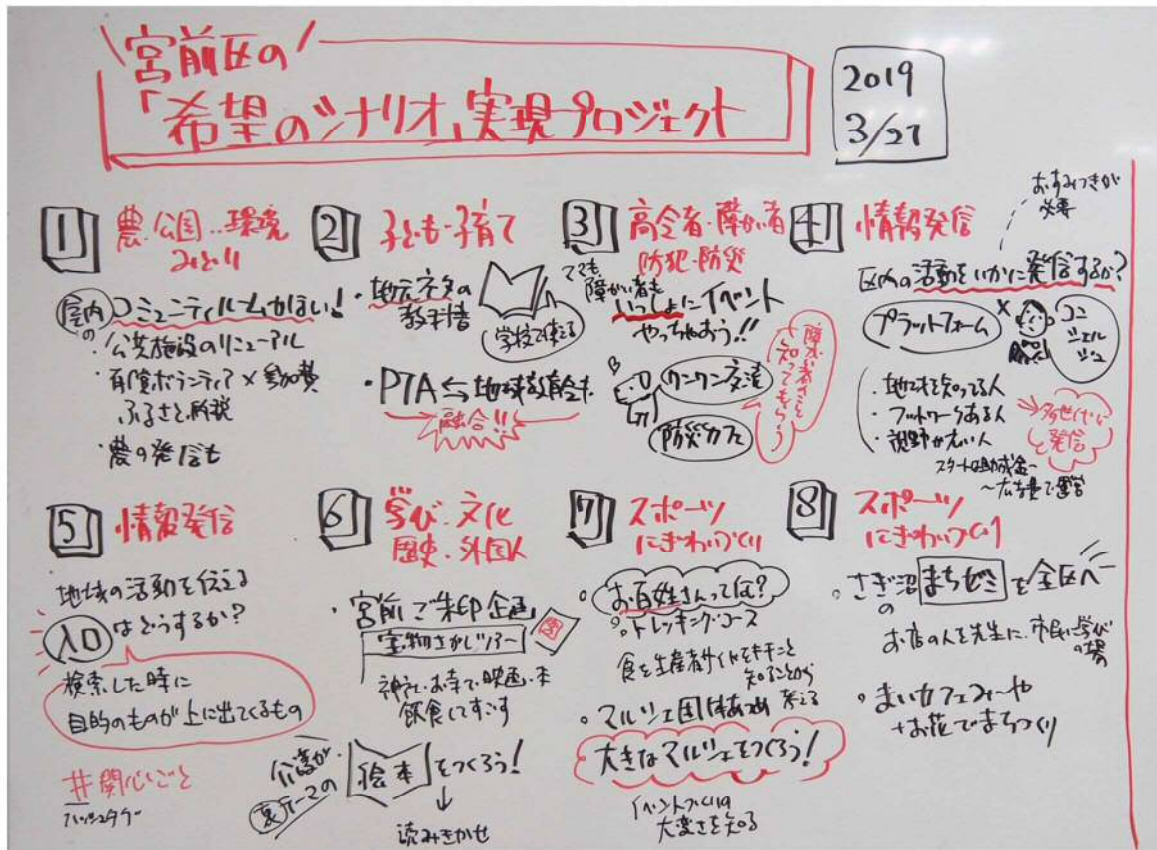 宮前区の
「希望のシナリオ」実現プロジェクト
2019
3/27
1 農・公園・環境
みどり
屋内の コミュニティルームがほしい！
・公共施設のリニューアル
・有償ボランティア×参加費
ふるさと納税
・農の発信も
2 子ども・子育て
・地元ネタの
教科書
学校で使える
・PTA⇆地域教育会も
融合!!
3 高令者・障がい者
防犯・防災
障がい者も
いっしょにイベント
やっちゃおう!!
ワンワン交流
防災カフェ
障がい者のこと
知ってもらう
4 情報発信
おすみつきが
必要
区内の活動をいかに発信するか？
プラットフォーム
×
コン
シェル
ジュ
・地域を知ってる人
・フットワークある人
・視野が広い人
多世代に
発信
スタートは助成金〜
〜広告費で運営
5 情報発信
地域の活動を伝える
入口はどうするか？
検索した時に
目的のものが上に出てくるもの
#関心ごと
ハッシュタグ
6 学び・文化
歴史・外国人
・宮前ご朱印企画
宝物さがしツアー
神社・お寺で映画・本
飲食してすごす
・介護が
裏テーマの
絵本をつくろう！
↓
読みきかせ
7 スポーツ
にぎわいづくり
。お百姓さんってな？
。トレッキングコース
食を生産者サイドをキチンと
知ることから
考える
。マルシェ団体あつめ
大きなマルシェをつくろう！
イベントづくりの
大変さを知る
8 スポーツ
にぎわいづくり
。さぎ沼の まちゼミ を全区へ
お店の人を先生に、市民に学び
の場
。まいカフェみーや
+お花でまちづくり